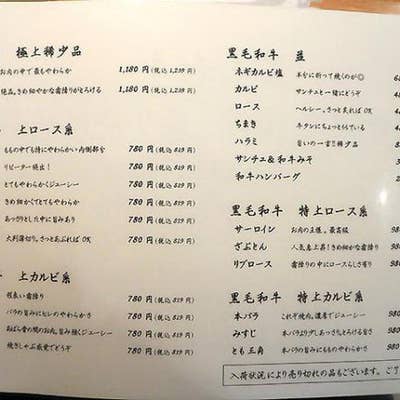 極上稀少品
お肉の中で最もやわらか 1,180円(税込1,239円)
絶品。きめ細やかな霜降りがとろける 1,180円(税込1,239円)
上ロース系
ももの中でも特にやわらかい内側部分 780円(税込819円)
リピーター続出! 780円(税込819円)
とてもやわらかくジューシー 780円(税込819円)
きめ細かくてとてもやわらか 780円(税込819円)
あっさりとした中に旨みあり 780円(税込819円)
大判薄切り。さっとあぶればOK 780円(税込819円)
上カルビ系
程良い霜降り 780円(税込819円)
バラの旨みにヒレのやわらかさ 780円(税込819円)
あばら骨の間のお肉。旨み強くジューシー 780円(税込819円)
焼きしゃぶ感覚でどうぞ 780円(税込819円)
黒毛和牛 並
ネギカルビ塩 半分に折って焼くのが◎
カルビ サンチュと一緒にどうぞ
ロース ヘルシー。さっと炙ればOK
ちまき 牛タンにちょっとにている
ハラミ 旨いの一言!!稀少品
サンチュ&和牛みそ
和牛ハンバーグ
黒毛和牛 特上ロース系
サーロイン お肉の王様。最高級 980
ざぶとん 人気急上昇!きめ細かな霜降り 980
リブロース 霜降りの中にロースらしさ有り 980
黒毛和牛 特上カルビ系
本バラ これぞ焼肉。濃厚でジューシー 980
みすじ 本バラより少しあっさり。とろける旨さ 980
とも三角 本バラの旨みにもものやわらかさ 980
入荷状況により売り切れの品もございます。ご了